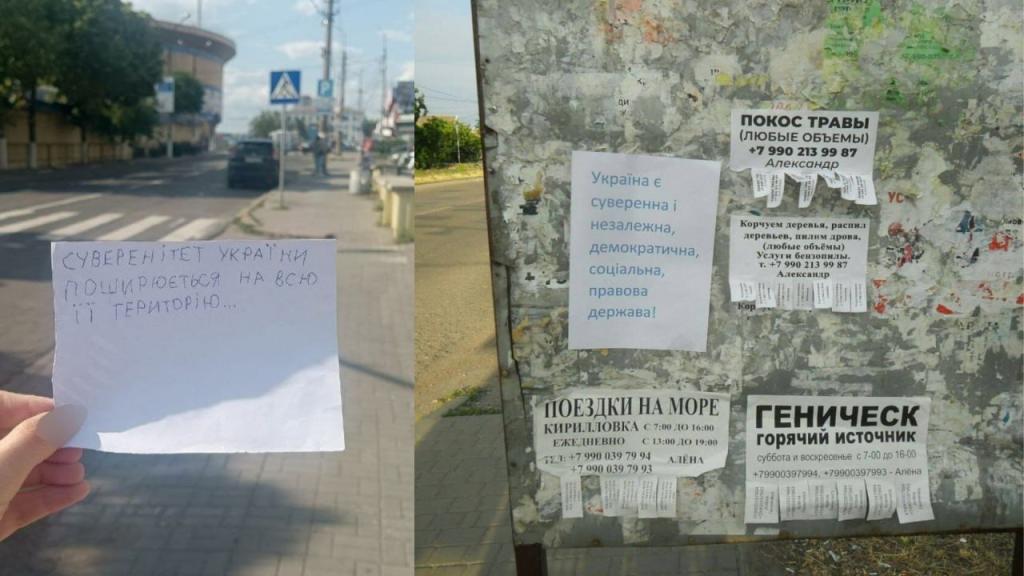 СУВЕРЕНІТЕТ УКРАЇНИ
ПОШИРЮЄТЬСЯ НА ВСЮ
ЇЇ ТЕРИТОРІЮ...
P
Україна є
суверенна і
незалежна,
демократична,
соціальна,
правова
держава!
ПОКОС ТРАВЫ
(ЛЮБЫЕ ОБЪЕМЫ)
+7 990 213 99 87
Александр
Корчуем деревья, распил
деревьев, пилим дрова,
(любые объёмы)
Услуги бензопилы.
т. +7 990 213 99 87
Александр
Кор
ус
ди
ПОЕЗДКИ НА МОРЕ
КИРИЛЛОВКА С 7:00 ДО 16:00
ЕЖЕДНЕВНО С 13:00 ДО 19:00
ТЕЛ: +7 990 039 79 94 АЛЁНА
+7 990 039 79 93
ГЕНИЧЕСК
горячий источник
суббота и воскресенье с 7-00 до 16-00
+79900397994, +79900397993 - Алёна